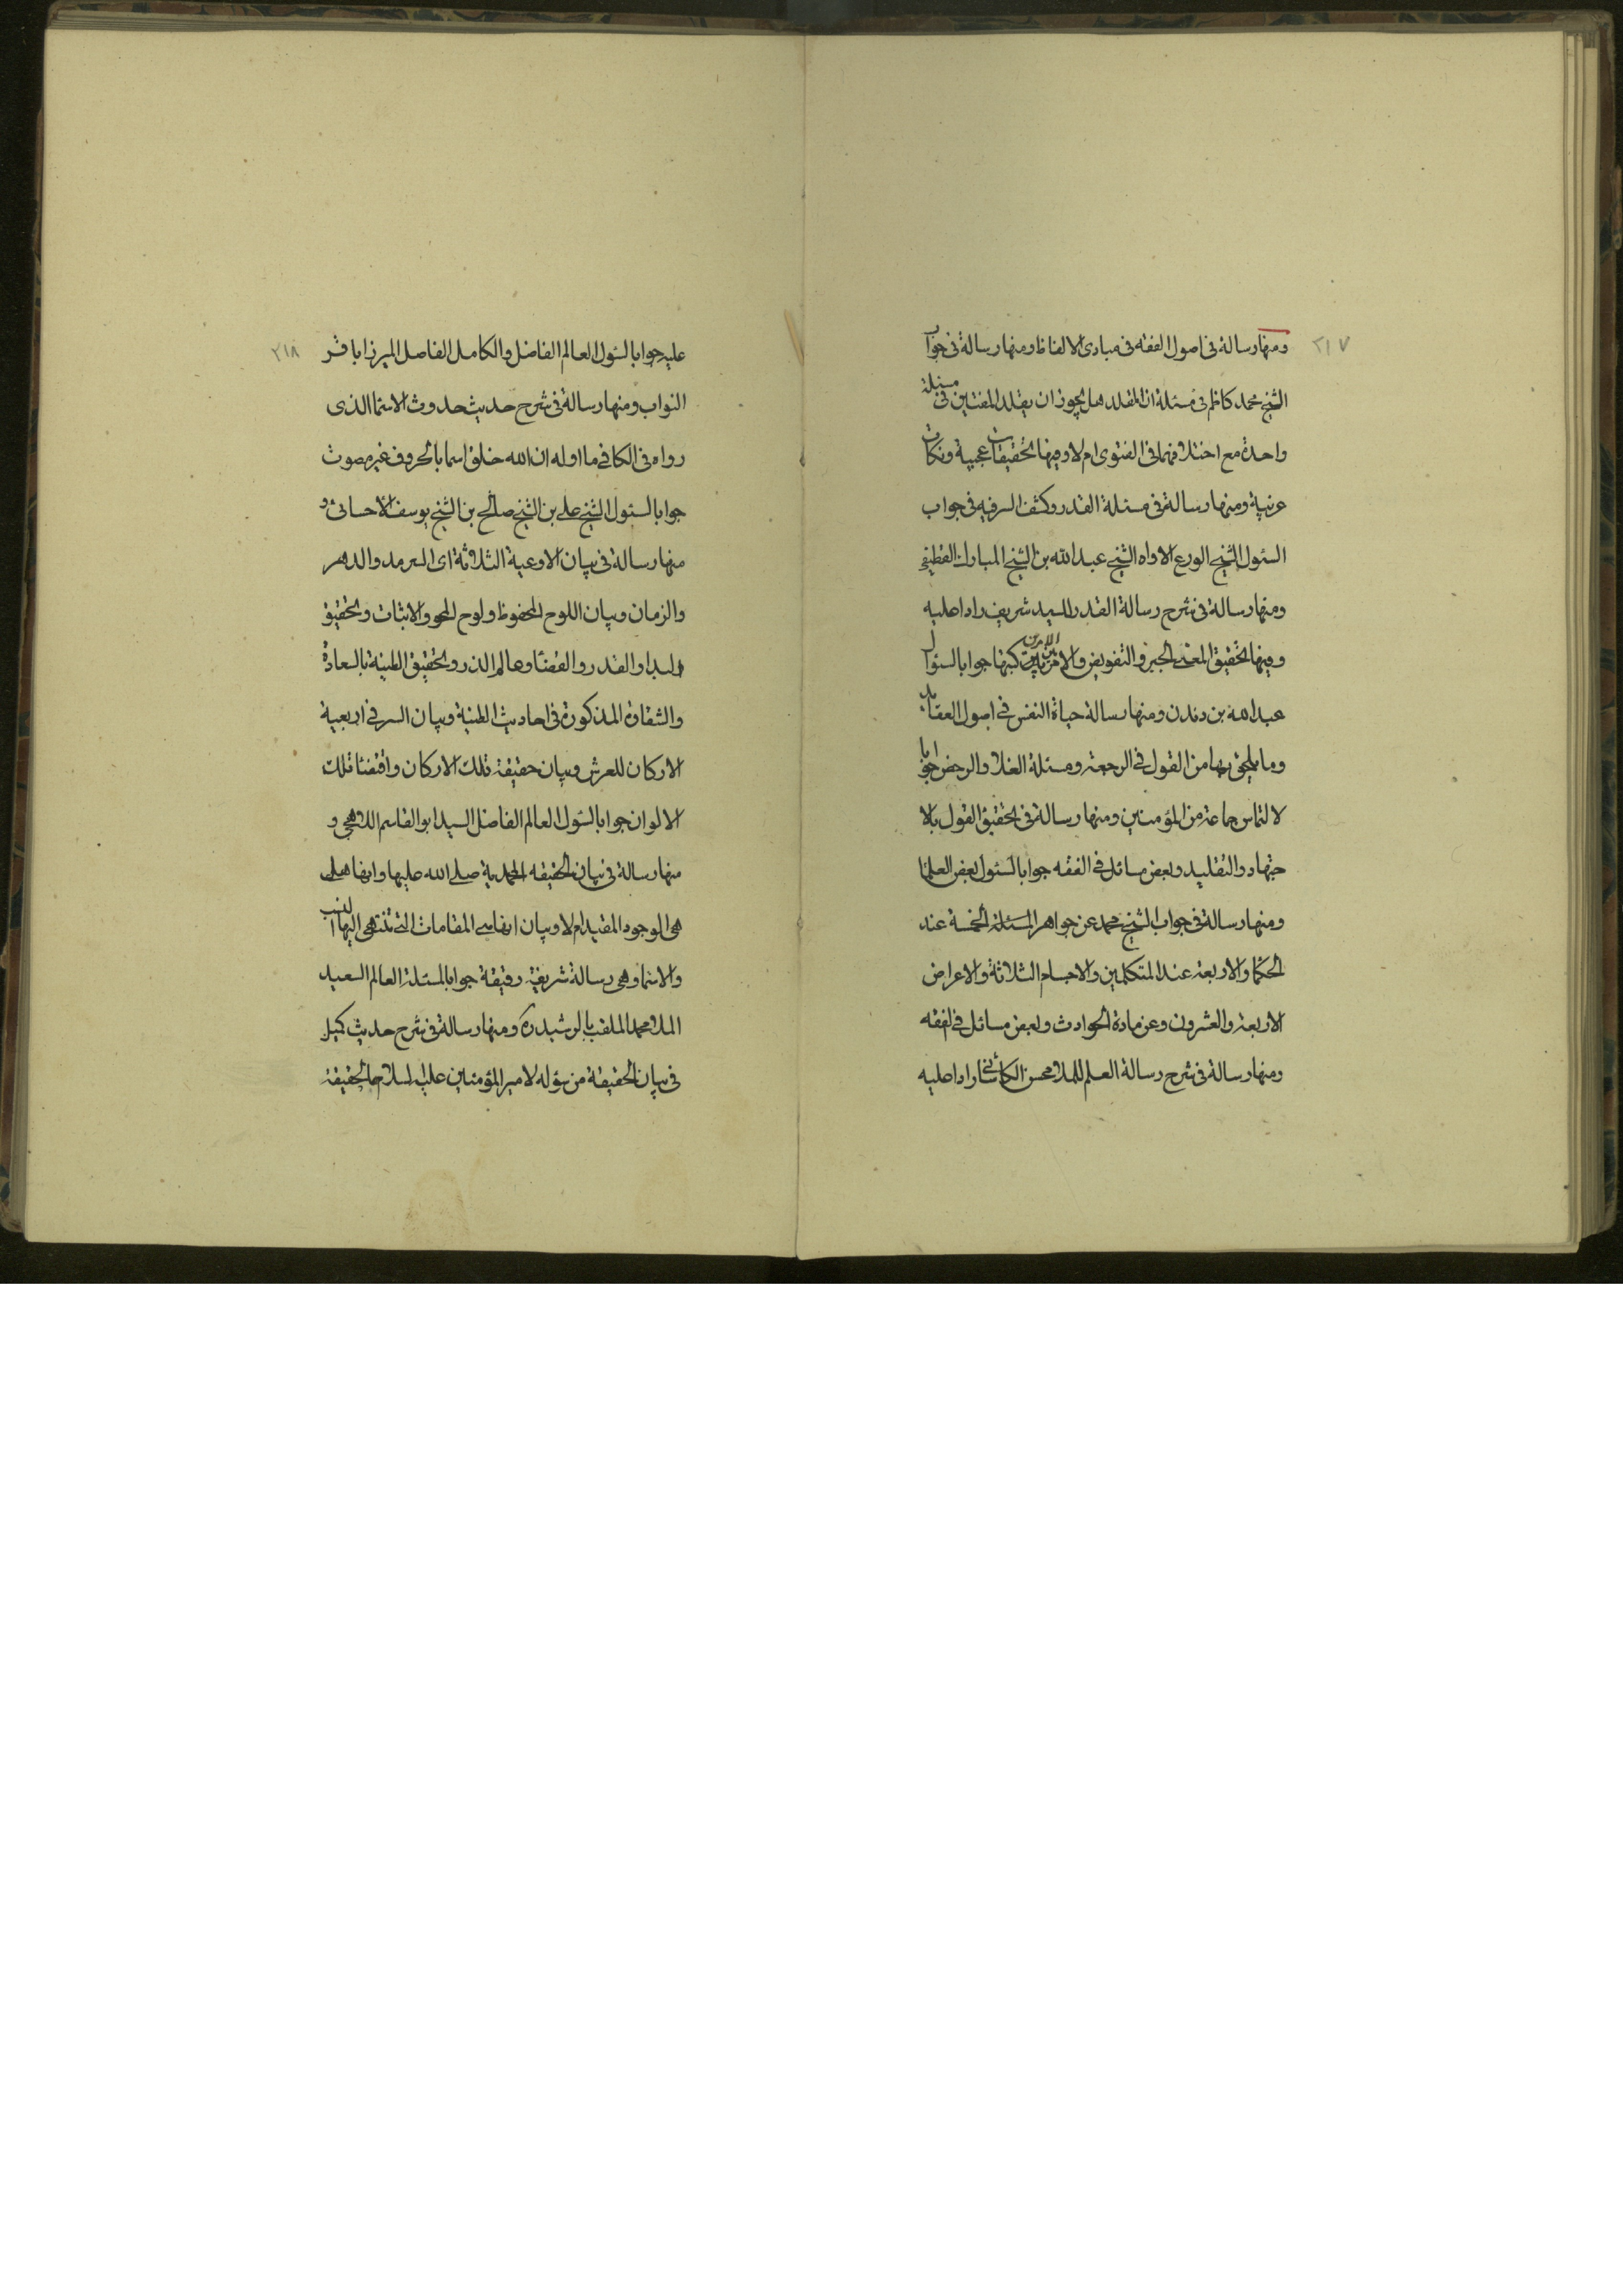 ٢١٧
ومنها رسالة فى اصول الفقه فى مبادى الالفاظ ومنها رسالة فى جواب
الشيخ محمد كاظم فى مسئلة ان المقلد هل يجوز ان يقلد المفتيين فى مسئلة
واحدة مع اختلافهما فى الفتوى ام لا وفيها تحقيقات عجيبة ونكات
غريبة ومنها رسالة فى مسئلة القدر وكشف السر فيه فى جواب
السئول الشيخ الورع الاواه الشيخ عبد الله بن الشيخ المبارك القطيفى
ومنها رسالة فى شرح رسالة القدر للسيد شريف رادا عليه
وفيها تحقيق المعنى الجبر والتفويض والامر بين الامرين كتبها جوابا لسئوال
عبد الله بن دندن ومنها رسالة حياة النفس فى اصول العقائد
وما يلحق بها من القول فى الرجعة ومسئلة الغلا والرخص جوابا
لالتماس جماعة من المؤمنين ومنها رسالة فى تحقيق القول بالا
جتهاد والتقليد وبعض مسائل فى الفقه جوابا لسئول بعض العلما
ومنها رسالة فى جواب الشيخ محمد عن جواهر المسئلة الخمسة عند
الحكما والاربعة عند المتكلمين والاجسام الثلاثة والاعراض
الاربعة والعشرون وعن مادة الحوادث وبعض مسائل فى الفقه
ومنها رسالة فى شرح رسالة العلم للملا محسن الكاشانى رادا عليه
٢١٨
عليه جوابا لسئول العالم الفاضل والكامل الفاصل الميرزا باقر
النواب ومنها رسالة فى شرح حديث حدوث الاسما الذى
رواه فى الكافى ما اوله ان الله خلق اسما بالحروف غير مصوت
جوابا لسئول الشيخ على بن الشيخ صالح بن الشيخ يوسف الاحسائى و
منها رسالة فى بيان الاوعية الثلاثة اى السرمد والدهر
والزمان وبيان اللوح المحفوظ ولوح المحو والاثبات وتحقيق
البدا والقدر والقضا وعالم الذر وتحقيق الطينة بالسعادة
والشقاوة المذكورة فى احاديث الطينة وبيان السر فى اربعية
الاركان للعرش وبيان حقيقة تلك الاركان واقتضا تلك
الالوان جوابا لسئول العالم الفاضل السيد ابو القاسم اللاهجى و
منها رسالة فى بيان الحقيقه المحمدية صلى الله عليها وانها هل
هى الوجود المقيد ام لا وبيان انها هى المقامات التى تنتهى اليها النسب
والاسما وهى رسالة شريفة دقيقة جوابا لمسئلة العالم السعيد
الملا محمد الملقب بالرشيد ره ومنها رسالة فى شرح حديث كميل
فى بيان الحقيقة من سؤله لامير المؤمنين عليه السلام ما الحقيقة